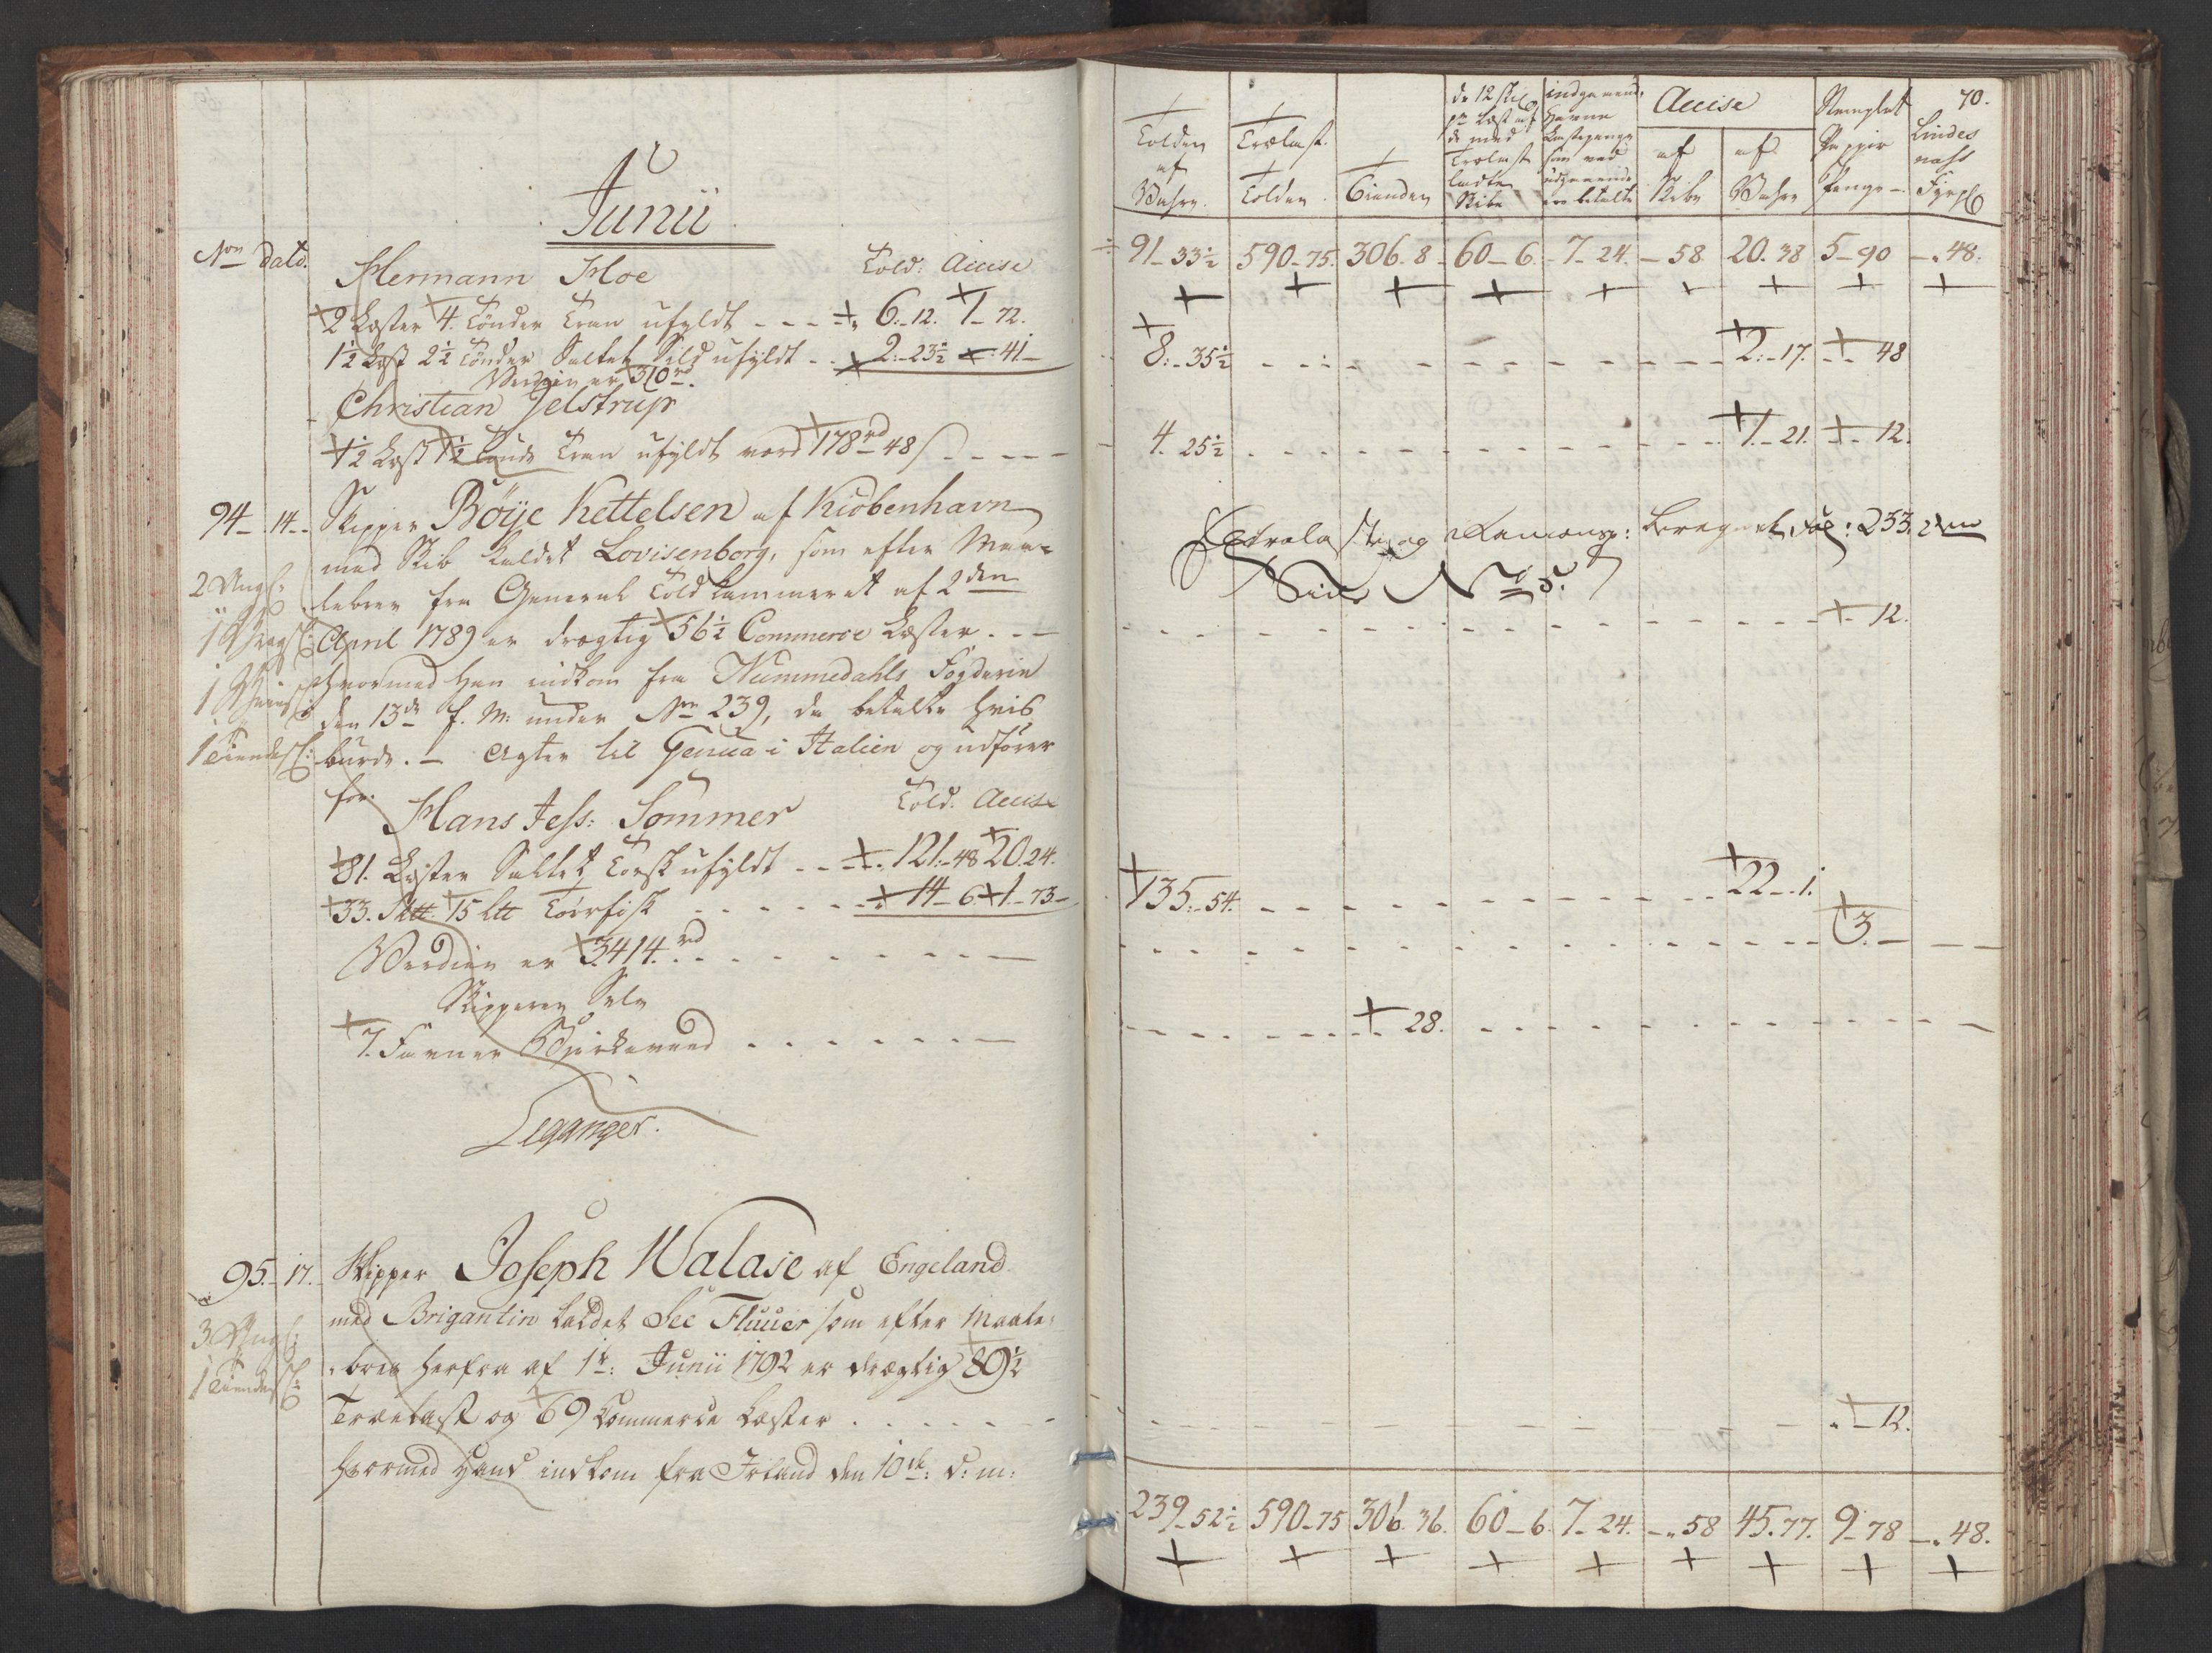 Junii
Non Dato.
Hermann Hoe Told: Accise
2 Læster 4. Tönder Tran ufyldt - - - 6.-12. 1-72.
1½ Læst 2½ Tönder Saltet Sild ufyldt - - 2.-23½ -41-
Verdien er 310 rd.
Christian Jelstrup
½ Læst ½ Tönde Tran ufyldt værd 178 rd 48 s - - - -
94-14- Skipper Böÿe Kettelsen af Kiöbenhavn
med Skib kaldet Lovisenborg, som efter Maa-
2 Ang s: lebrev fra General Toldkammeret af 2den
April 1789 er drægtig 56½ Commerce Læster. - -
Hvormed Han indkom fra Nummedahls Fogderie
den 13de f. M: under No 239, da betalte hvis
1 Tiende s: burde. - Agter til Genua i Italien og udförer
for
Hans Jess: Sommer Told. Accise
81. Læster Saltet Torsk ufyldt - - 121.-48 20.24.
33. Sktt 15 ltt Törfisk - - - - - 14-6 1-73-
Verdien er 3414. rd - - - - - - - -
Skipperen Selv
7. Favner Birkeveed - - - - - - -
Leganger.
95.-17. Skipper Joseph Walase af Engeland
med Brigantin kaldet See Fluuer som efter Maale-
3 Ang s:
1 Tiende s: brev herfra af 1te: Junii 1792 er drægtig 89½
Trælast og 69 Commerce Læster - - - - - -
hvormed Hand indkom fra Irland den 10de: d: m:
70.
Tolden af Vahre.
Trælast. Tolden.
Tienden
de 12 sk pr Læst af de med Trælast ladte Skibe
indgaaende Havne Lastepenge som ved udgaaende ere betalte
Accise
af Skibe
af Vahre
Stemplet Papiir Penge -
Lindes næss Fyrp:
91-33½ 590-75. 306. 8- 60-6. -7-24. -58. 20.38 5-90 -.48.
8.-35½ - - - - - - - - - - 2.-17. - 48
4. 25½ - - - - - - - - - - 1.-21. - 12.
Extralast og Rancons: beregnet, fol: 253. 2den
Side No 5.
- - - - - - - - - - 12.
135.-54. - - - - - - - - - - 22-.1.
- - - - - - - - - - 3. - - -
- - - - - 28. - - - - - - - - - -
- - - - - - - - - - 12.
239-52½ 590-75 306. 36. 60-6. 7-24. -.58 45.77. 9-78 -.48.